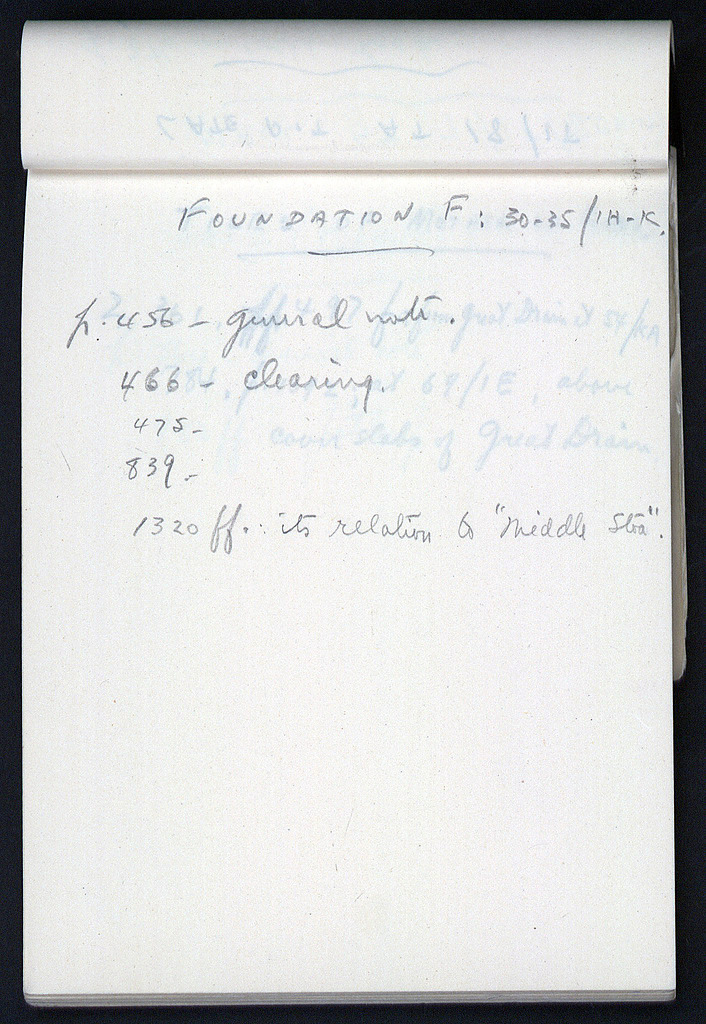 FOUNDATION F: 30-35/IH-K.
p. 456 - general note.
466 - clearing.
475-
839-
1320 ff.: its relation to "Middle Stoa".